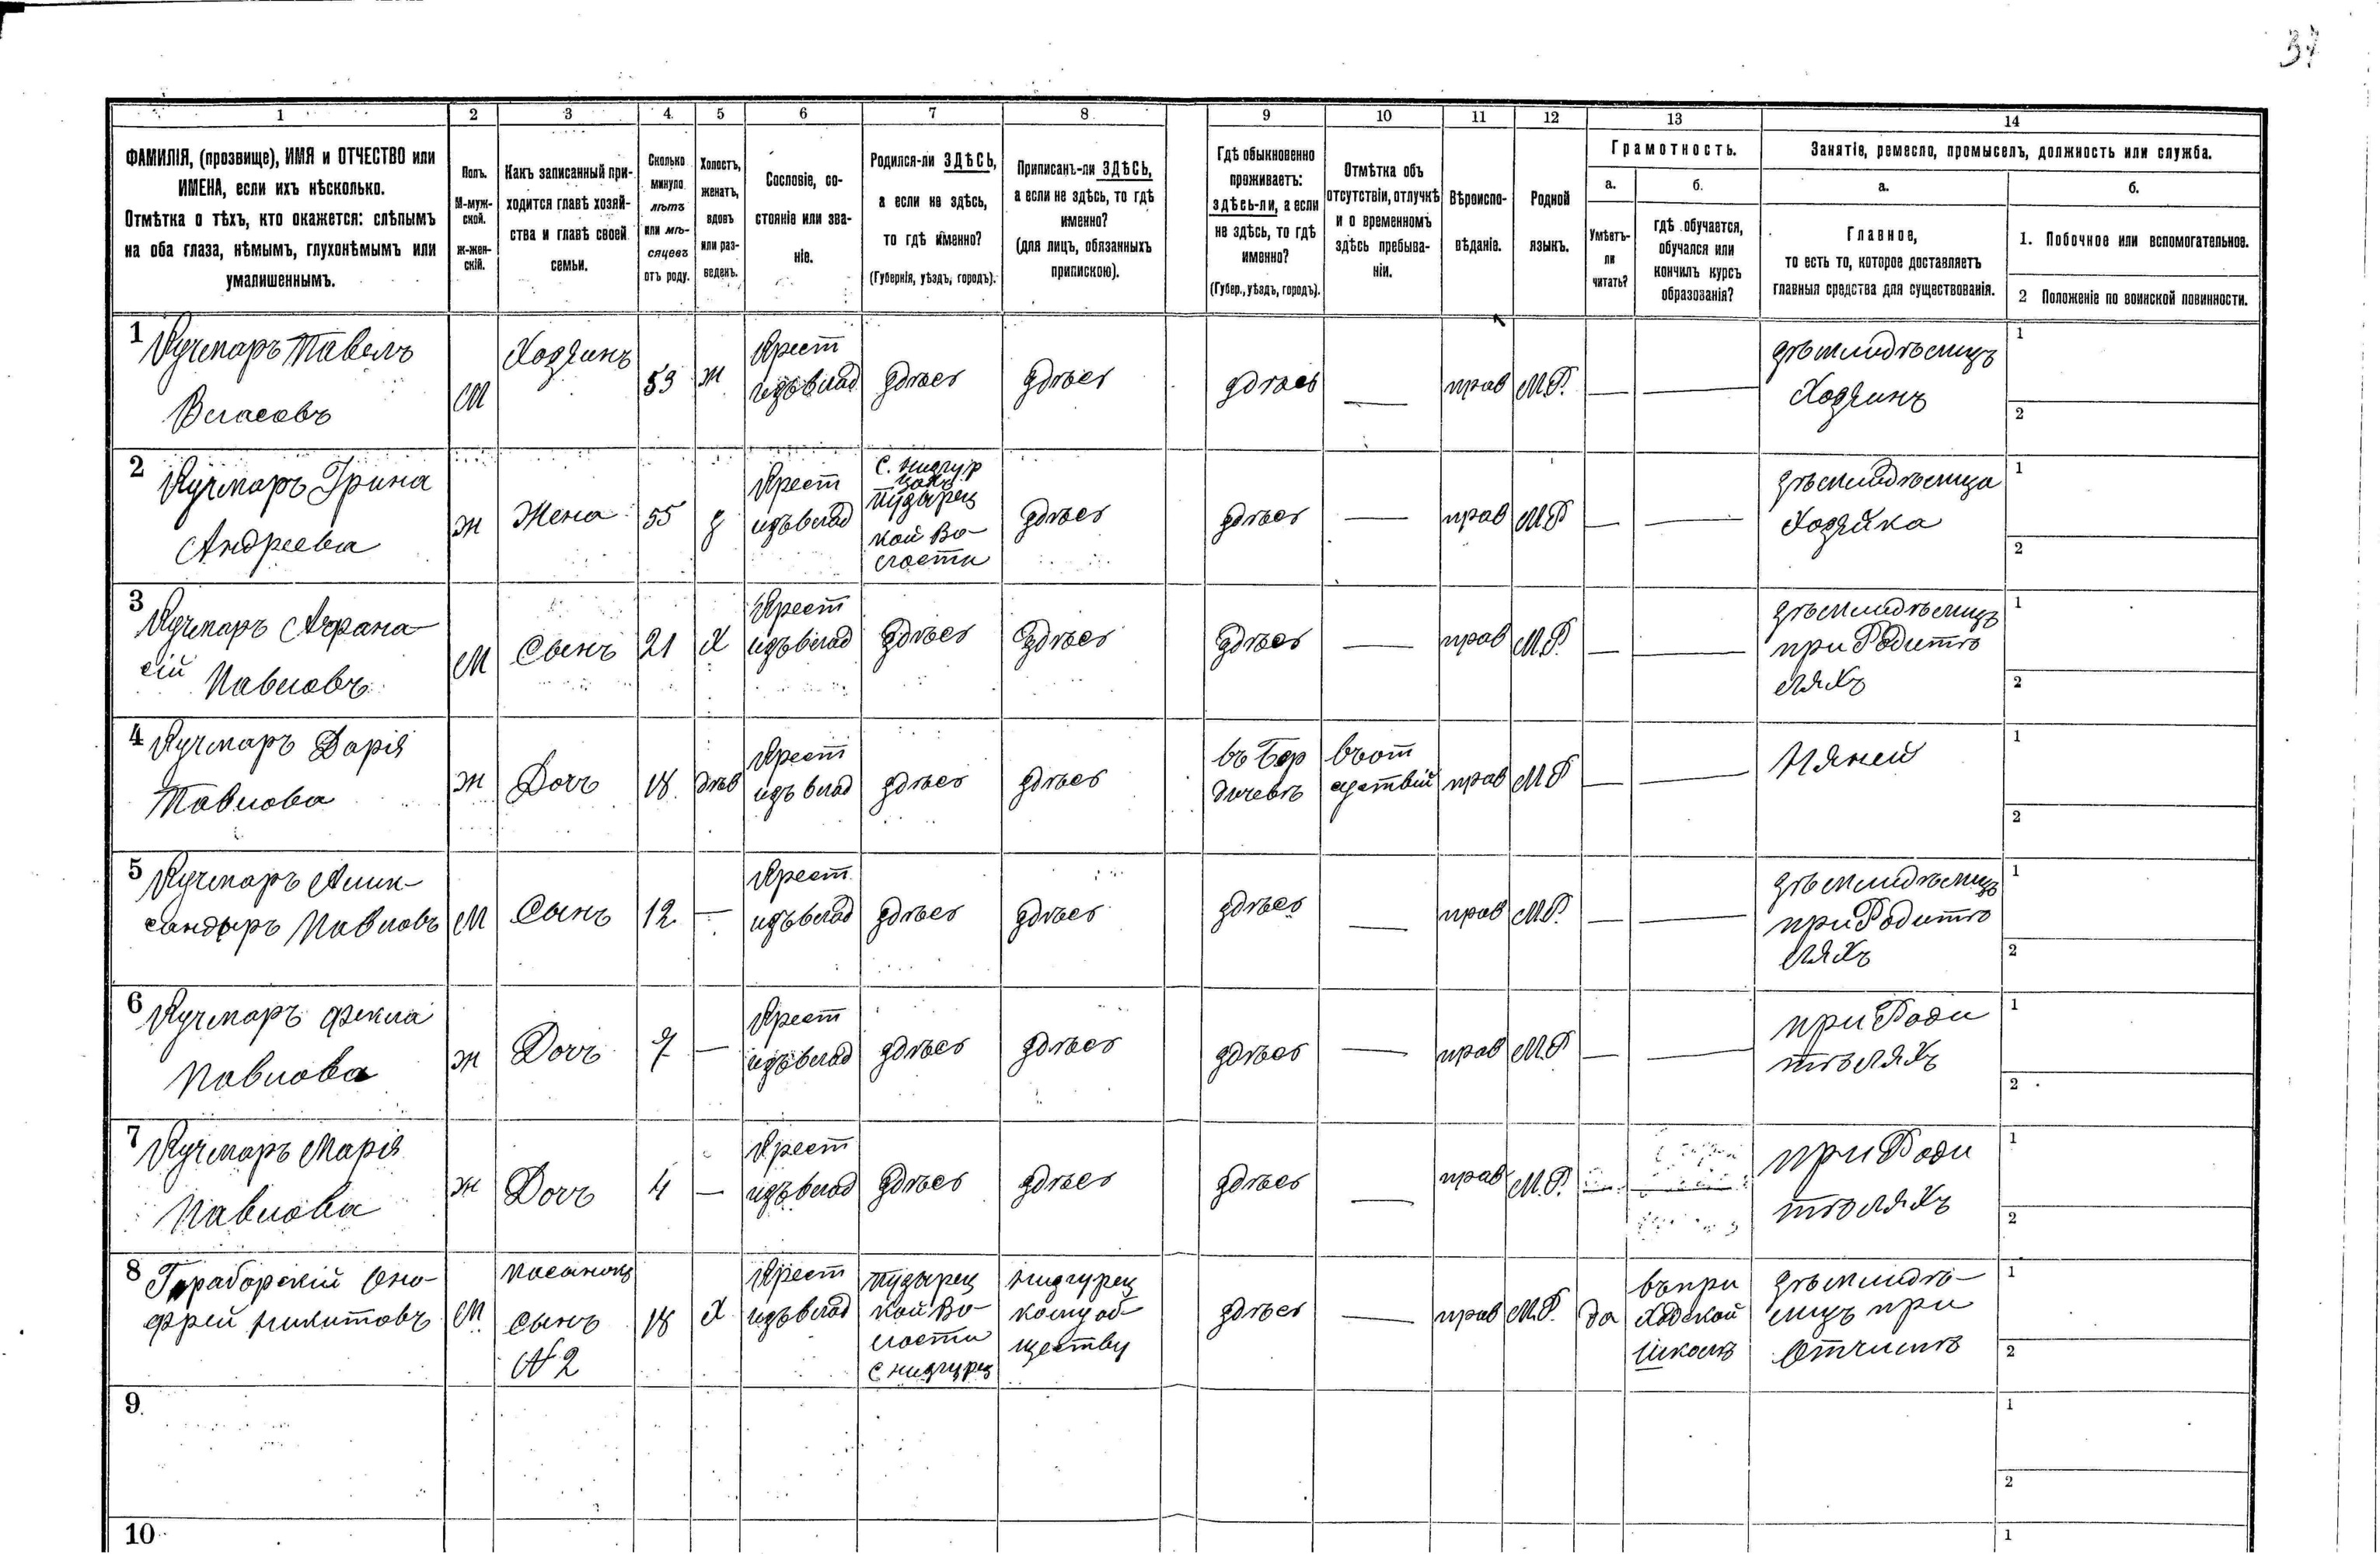 37
1 2 3 4 5 6 7 8 9 10 11 12 13 14
ФАМИЛІЯ, (прозвище), ИМЯ и ОТЧЕСТВО или
ИМЕНА, если ихъ нѣсколько.
Отмѣтка о тѣхъ, кто окажется: слѣпымъ
на оба глаза, нѣмымъ, глухонѣмымъ или
умалишеннымъ.
Полъ.
М-муж-
ской.
Ж-жен-
скій.
Какъ записанный при-
ходится главѣ хозяй-
ства и главѣ своей
семьи.
Сколько
минуло
лѣтъ
или мѣ-
сяцевъ
отъ роду.
Холостъ,
женатъ,
вдовъ
или раз-
веденъ.
Сословіе, со-
стояніе или зва-
ніе.
Родился-ли ЗДѢСЬ,
а если не здѣсь,
то гдѣ именно?
(Губернія, уѣздъ, городъ).
Приписанъ-ли ЗДѢСЬ,
а если не здѣсь, то гдѣ
именно?
(для лицъ, обязанныхъ
припискою).
Гдѣ обыкновенно
проживаетъ:
здѣсь-ли, а если
не здѣсь, то гдѣ
именно?
(Губер., уѣздъ, городъ).
Отмѣтка объ
отсутствіи, отлучкѣ
и о временномъ
здѣсь пребыва-
ніи.
Вѣроиспо-
вѣданіе.
Родной
языкъ.
Грамотность.
а.
Умѣетъ-
ли
читать?
б.
гдѣ обучается,
обучался или
кончилъ курсъ
образованія?
Занятіе, ремесло, промыселъ, должность или служба.
а.
Главное,
то есть то, которое доставляетъ
главныя средства для существованія.
б.
1. Побочное или вспомогательное.
2 Положеніе по воинской повинности.
1
Кучмаръ Павелъ
Власовъ
М
Хозяинъ
53
Ж
Крест
изъ влад
здѣсь
здѣсь
здѣсь
—
прав
М.Р.
—
—
Хозяинъ
1
2
2
Кучмаръ Ірина
Андреева
Ж
Жена
55
З
Крест
изъ влад
кой Во-
лости
здѣсь
здѣсь
—
прав
М.Р
—
—
Хозяйка
1
2
3
Кучмаръ Афана-
сій Павловъ
М
Сынъ
21
Х
Крест
изъ влад
здѣсь
здѣсь
здѣсь
—
прав
М.Р.
—
—
при Родитѣ
ляхъ
1
2
4
Кучмаръ Дарія
Павлова
Ж
Дочь
18
дѣв
Крест
изъ влад
здѣсь
здѣсь
въ Бер
дичевѣ
въ от
суствіи
прав
М.Р
—
—
Няней
1
2
5
Кучмаръ Алик-
сандыръ Павловъ
М
Сынъ
12
—
Крест
изъ влад
здѣсь
здѣсь
здѣсь
—
прав
М.Р.
—
—
при Родитѣ
ляхъ
1
2
6
Кучмаръ Фекла
Павлова
Ж
Дочь
7
—
Крест
изъ влад
здѣсь
здѣсь
здѣсь
—
прав
М.Р
—
—
при Роди
тѣляхъ
1
2
7
Кучмаръ Марія
Павлова
Ж
Дочь
4
—
Крест
изъ влад
здѣсь
здѣсь
здѣсь
—
прав
М.Р.
—
—
при Роди
тѣляхъ
1
2
8
Оно-
фрей Никитовъ
М
сынъ
№ 2
18
Х
Крест
изъ влад
кой Во-
лости
об-
ществу
здѣсь
—
прав
М.Р.
да
въ при
ходской
школѣ
при
Отчимѣ
1
2
9
1
2
10
1